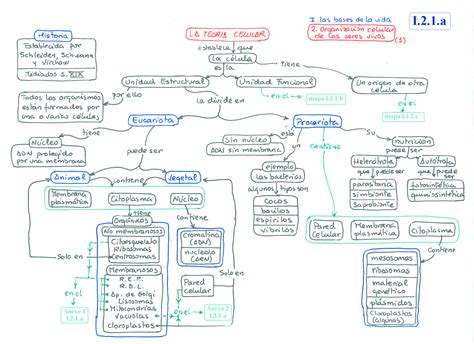 Historia
Establecida por
Schleiden, Schwann
y Virchow
Mediados S. XIX
LA TEORÍA CELULAR
establece que
la célula
es la
tiene
I. las bases de la vida
2. Organización celular
de los seres vivos
(1)
I.2.1.a
Unidad Estructural
Unidad Funcional
Un origen de otra
célula
en el
mapa I.2.1.b
en el
mapa I.2.1.c
Todos los organismos
están formados por
una o varias células
por ello
la divide en
Eucariota
Procariota
tiene
Núcleo
ADN protegido
por una membrana
puede ser
Animal
Vegetal
Membrana
plasmática
Citoplasma
Núcleo
tiene
contiene
Orgánulos
No membranosos
Citoesqueleto
Ribosomas
Centrosomas
Membranosos
R.E.R.
R.E.L.
Ap. de Golgi
Lisosomas
Mitocondrias
Vacuolas
Cloroplastos
Solo en
en el
Anexo 1
I.2.1.a
en el
Anexo 2
I.2.1.a
Cromatina
(ADN)
nucleolo
(ADN)
Pared
celular
Solo en
Sin núcleo
ADN sin membrana
un
ejemplo
las bacterias
algunos tipos son
cocos
bacilos
espirilos
vibrilos
contiene
Su
nutrición
puede ser
Heterótrofa
Autótrofa
que puede ser
que puede ser
parasitaria
simbionte
saprobionte
fotosintética
quimiosintética
Pared
Celular
Membrana
plasmática
Citoplasma
Contiene
mesosomas
ribosomas
material
genético
plásmidos
Cloroplastos
(algunas)